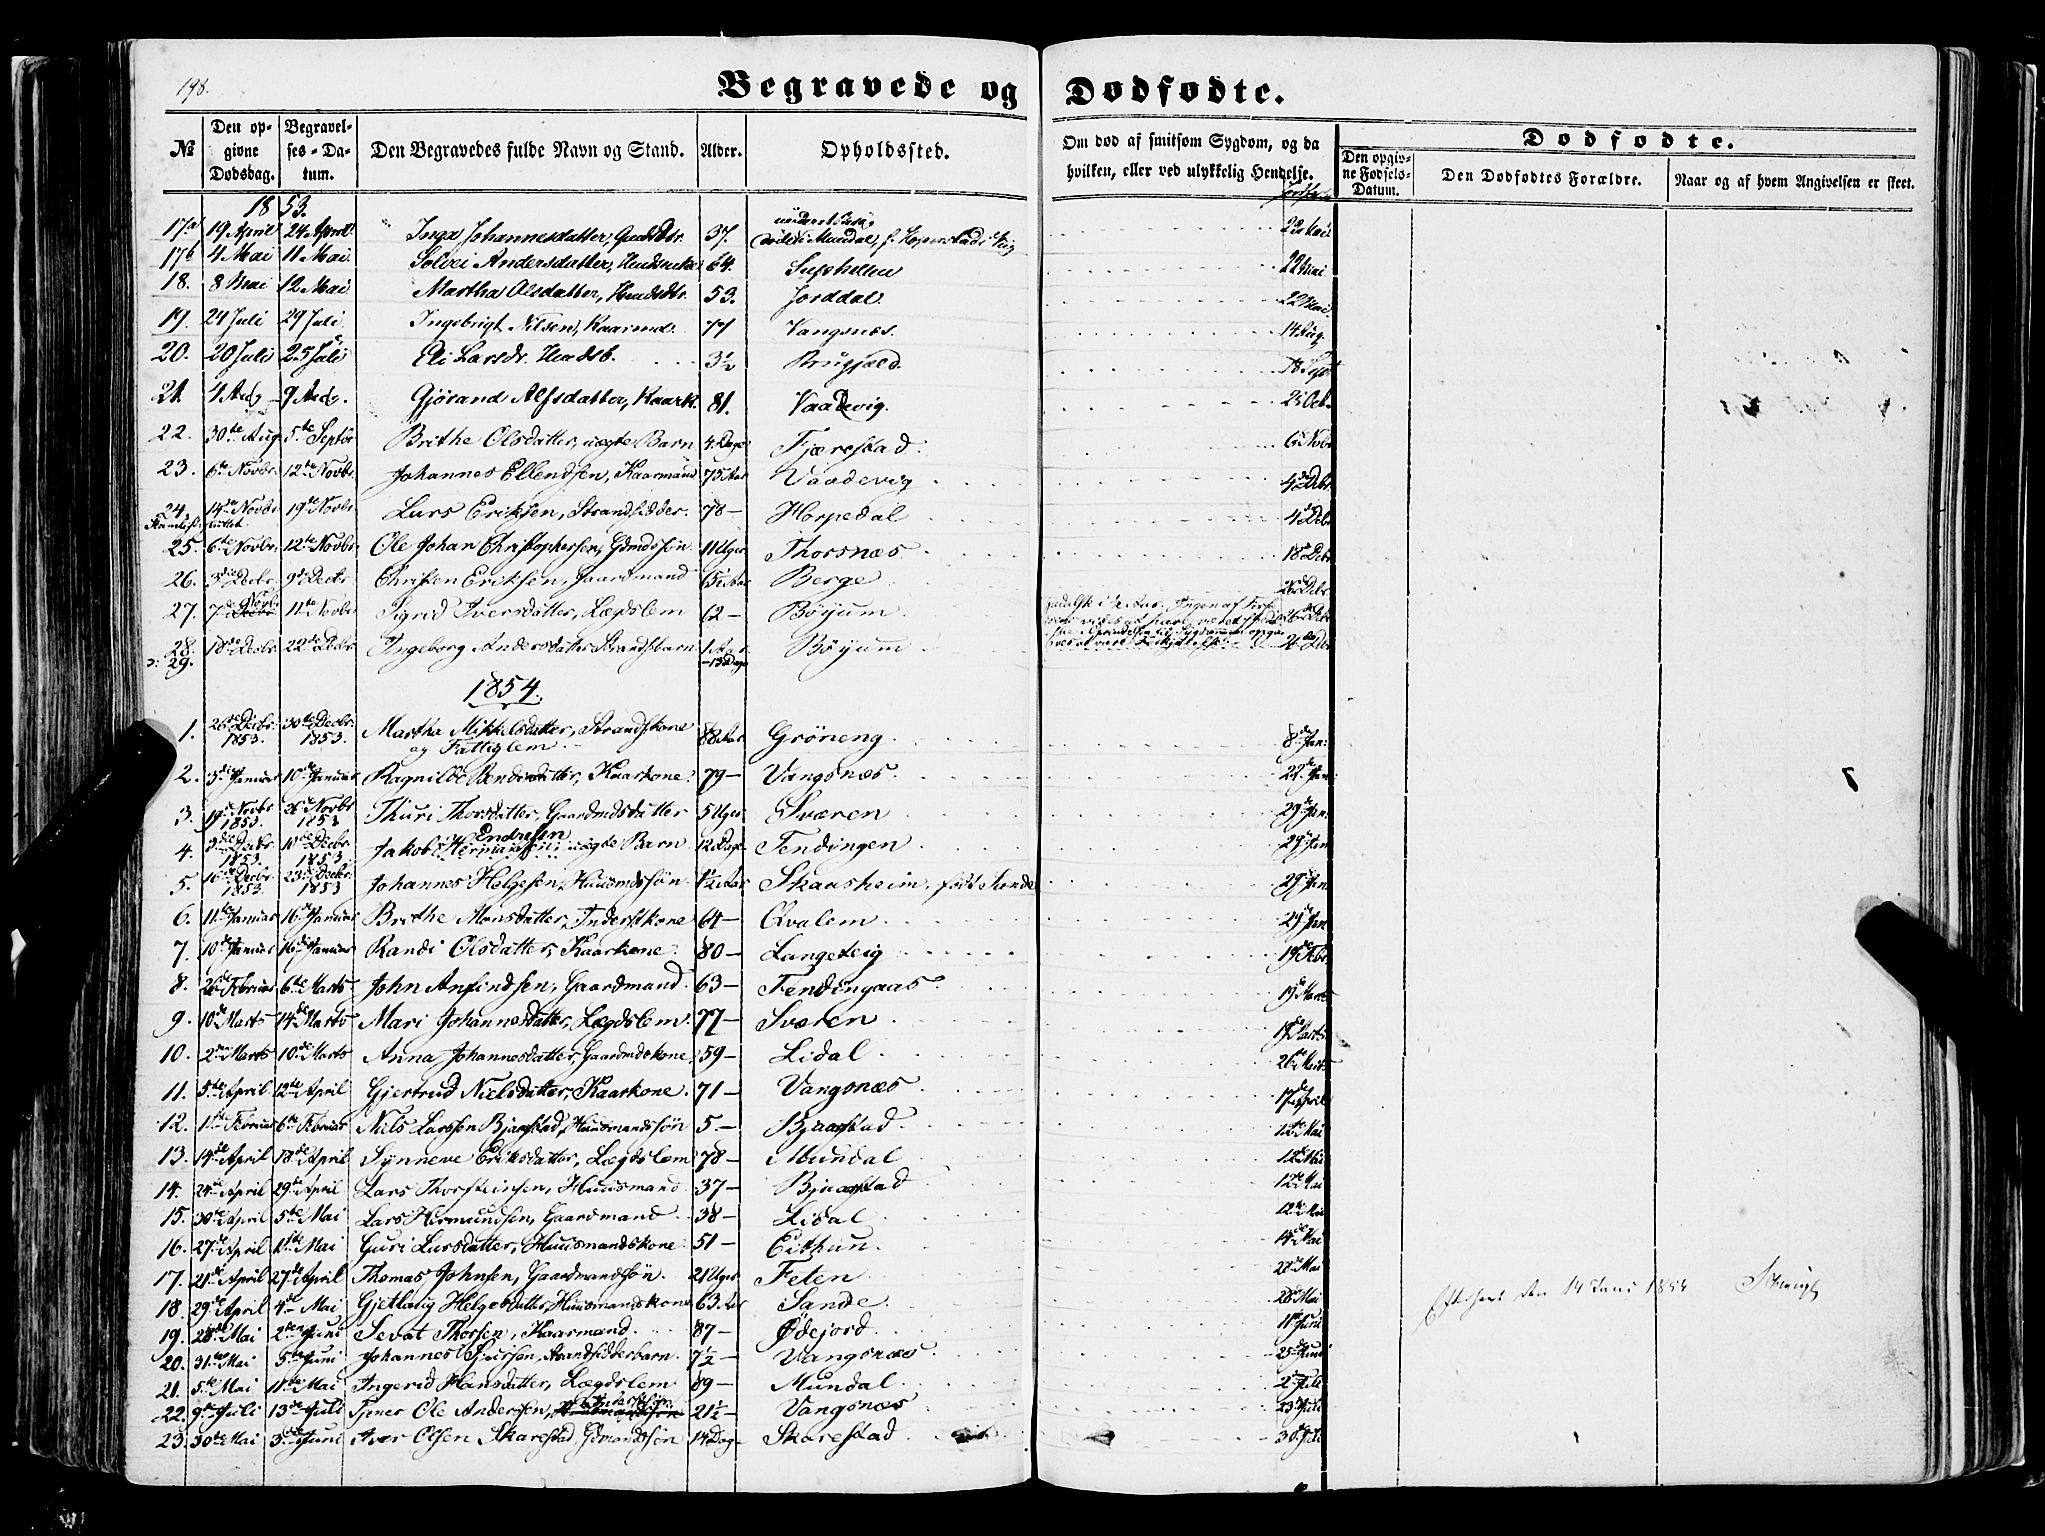 198.
Begravede og Dødfødte.
№ Den opgivne Dødsdag. Begravelses-Datum. Den Begravedes fulde Navn og Stand. Alder. Opholdssted. Om død af smitsom Sygdom, og da hvilken, eller ved ulykkelig Hendelse. Dødfødte. Den opgivne Fødsels-Datum. Den Dødfødtes Forældre. Naar og af hvem Angivelsen er skeet.
1853.
17a 19 April 24 April Inga Johannesdatter, 37. Mundal, f. Hopperstad i Vig 22 Mai
17b 4 Mai 11 Mai Solvei Andersdatter, 64. 22 Mai
18. 8 Mai 12 Mai Martha Olsdatter, 53. Jorddal. 22 Mai
19. 24 Juli 29 Juli Ingebrigt Nilsen, Kaarmd. 77 Vangsnæs. 14 Aug.
20. 20 Juli 25 Juli Eli Larsdr. Husdb. 3½ 18 Sept
21. 4 9 Gjörand Alfsdatter, Kaark. 81. Vaadevig. 2 Oct.
22. 30te Aug 5te Septbr Brithe Olsdatter, uægte Barn 4 Dage Fjærestad. 6 Novbr
23. 6te Novbr. 12te Novbr. Johannes Ellendsen, Kaarmand 75 Aar Vaadevig 4de Debr
24. 14de Novbr 19de Novbr Lars Eriksen, Strandsidder. 78 — Horpedal 4de Debr
25. 6te Novbr. 12te Novbr. Ole Johan Christophersen, Gdmdssøn 11 Uger Thorsnæs 18 Debr
26. 3die Decbr 9de Decbr Christen Eriksen, Gaardmand 65 Aar Berge 26 Debr
27. 7de Novbr 11te Novbr. Sigrid Iversdatter, Lægdslem 62 — Böyum 26 Debr
28. 18de Decbr. 22de Decbr Ingeborg Andersdatter Strandsbarn 1 Aar Böyum 26 Debr
29. — 13 Dage
1854.
1. 26de Decbr. 1853. 30te Decbr. 1853. Martha Mikkelsdatter, Strandskone og Fattiglem. 88 Aar Gröneng 8de Jan:
2. 3die Januar 10de Januar Ragnilde datter, Kaarkone. 79 — Vangsnæs. 22de Jan:
3. 19de Novbr 1853. 26 Novbr 1853 Thuri Thorsdatter, Gaardmdsdatter 5 Uger Sværen 29de Jan:
4. 3die Decbr. 1853. 10de Decbr 1853. Jakob Hermansen Endresen uægte Barn 12 Dage Tendingen 29de Jan
5. 16de Decbr 1853. 23de Decbr. 1853 Johannes Helgesen, Huusmdssøn. ½ Aar Skaasheim, født Sande 29de Jan
6. 11te Januar 16de Januar Brithe Monsdatter, Inderstkone 64 — Qvalem 29de Jan
7. 10de Januar 16de Januar Randi Olsdatter, Kaarkone. 80 — Langeteig 19de Febr.
8. 26de Februar 6te Marts John Anfindsen, Gaardmand. 63 — Tendingaas 19de Marts
9. 10de Marts 14de Marts Mari Johannesdatter, Lægdslem. 77 — Sværen 19de Marts
10. 2den Marts 10de Marts Anna Johannesdatter, Gaardmdskone. 59 — Lidal 26de Marts
11. 5te April 12te April Gjertrud Nielsdatter, Kaarkone. 71 — Vangsnæs 17de April
12. 1ste Februar 6te Februar Niels Larssen Bjaastad, Huusmandssøn 5 — Bjaastad. 12te Mai
13. 14de April 18de April Synneve Eriksdatter, Lægdslem 78 — Mundal 12te Mai
14. 24de April 29de April Lars Thorsteinsen, Huusmand 37 — Bjaastad 12te Mai
15. 30te April 5te Mai Lars Hermundsen, Gaardmand 38 — Lidal 12te Mai
16. 27de April 1ste Mai Guri Larsdatter, Huusmandskone 51 — Eithun. 14de Mai
17. 21de April 27de April Thomas Johnsen, Gaardmandssøn. 21 Uger Feten 28de Mai
18. 29de April 4de Mai Gjetlaug Helgesdatter, Huusmandskone 63 Aar Sande. 28de Mai
Efterseet den 14 Juni 1854
19. 28de Mai 2den Juni Sevat Thorsen, Kaarmand. 87 — Ødejord 11te Juni
20. 31te Mai 5te Juni Johannes Sjursen, Strandsidderbarn. 7½ — Vangsnæs 25de Juni
21. 5te Mai 11te Mai Ingerid Hansdatter, Lægdslem 89 — Mundal 2 Juli
22. 9de Juli 13de Juli Tjener Ole Andersen, 21½ — Vangsnæs 23 Juli
23. 30te Mai 3die Juni Iver Olsen Skarestad, Gdmandssøn 14 Dag Skarestad 30 Juli